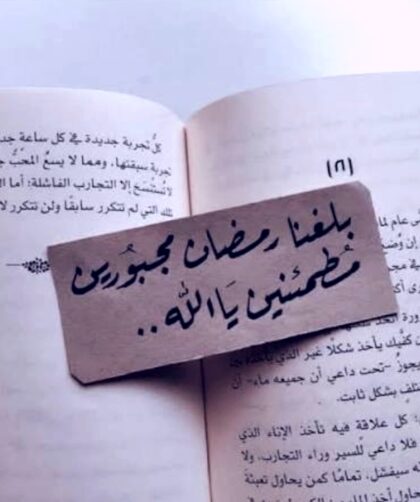 كلُّ تجربة جديدة في كل ساعة
تجربة سبقتها، وهما لا يسعُ المحبّ
لا تُستنسَخ إلا التجارب الفاشلة؛ أما
تلك التي لم تتكرر سابقًا ولن تتكرر
بلغنا رمضان مجبُورين
مُطمئنين يَا الله ..
كفيك يأخذ شكلًا غير الذي يأخذه
يجوز -تحت داعي أن جميعه ماء- أن
بشكل ثابت.
: كل علاقة فيه تأخذ الإناء الذي
فلا داعي للسير وراء التجارب، ولا
سيفشل، تمامًا كمن يحاول تعبئة